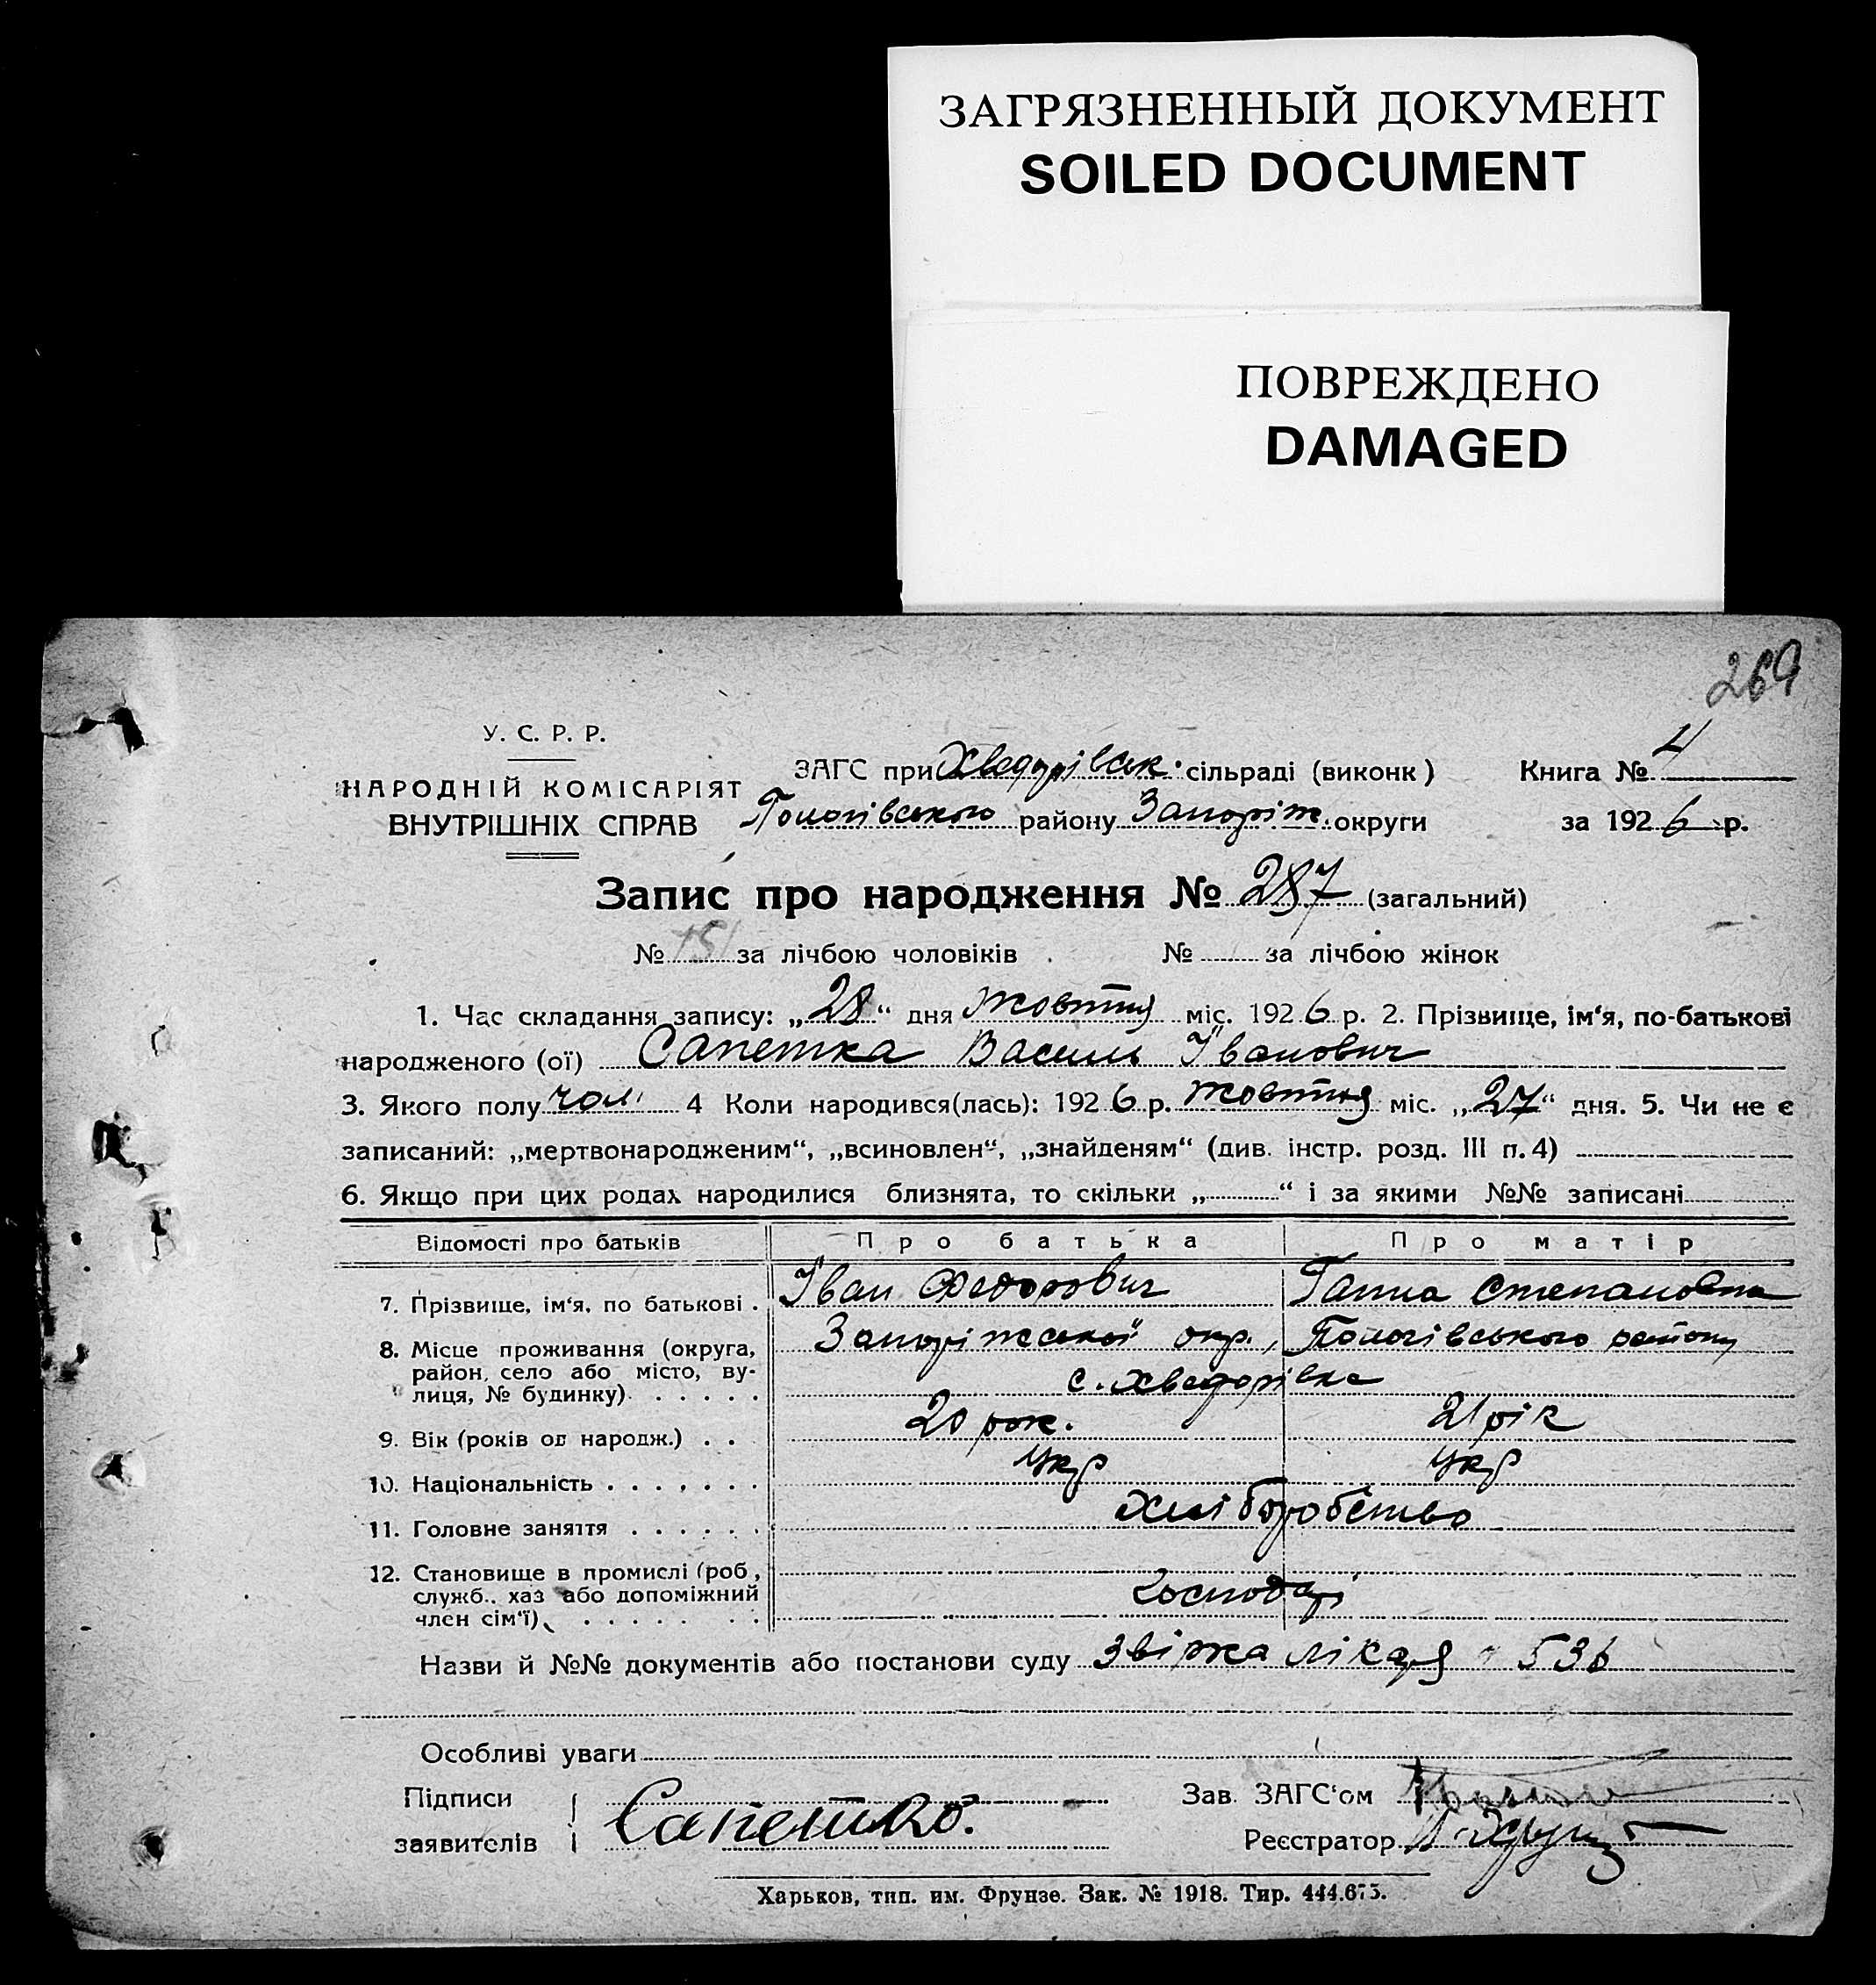 ЗАГРЯЗНЕННЫЙ ДОКУМЕНТ
SOILED DOCUMENT
ПОВРЕЖДЕНО
DAMAGED
269
У. С. Р. Р.
НАРОДНІЙ КОМІСАРІЯТ
ВНУТРІШНІХ СПРАВ
ЗАГС при Хведорівськ. сільраді (виконк)
Пологівського району Запоріж. округи
Книга № 4
за 1926 р.
Запис про народження № 287 (загальний)
№ 151 за лічбою чоловіків № за лічбою жінок
1. Час складання запису: „28“ дня жовтня міс. 1926 р. 2. Прізвище, ім‘я, по-батькові
народженого (ої) Сапетка Василь Іванович
3. Якого полу чол. 4 Коли народився(лась): 1926 р. жовтня міс. „27“ дня. 5. Чи не є
записаний: „мертвонародженим“, „всиновлен“, „знайденям“ (див. інстр. розд. III п. 4)
6. Якщо при цих родах народилися близнята, то скільки „ “ і за якими №№ записані
Відомості про батьків Про батька Про матір
7. Прізвище, ім‘я, по батькові . Іван Федорович Ганна Степановна
8. Місце проживання (округа, район, село або місто, вулиця, № будинку) . . . . . Запоріжської окр., Пологівського району
с. Хведорівка
9. Вік (років од народж.) . . 20 рок. 21 рік
10. Національність . . . . . . . Укр Укр
11. Головне заняття . . . . . . Хліборобство
12. Становище в промислі (роб, служб.. хаз або допоміжний член сім‘ї) . . . . . . . господарі
Назви й №№ документів або постанови суду Звістка лікаря 536
Особливі уваги
Підписи
заявителів Сапетко.
Зав. ЗАГС‘ом
Реєстратор
Харьков, тип. им. Фрунзе. Зак. № 1918. Тир. 444.675.